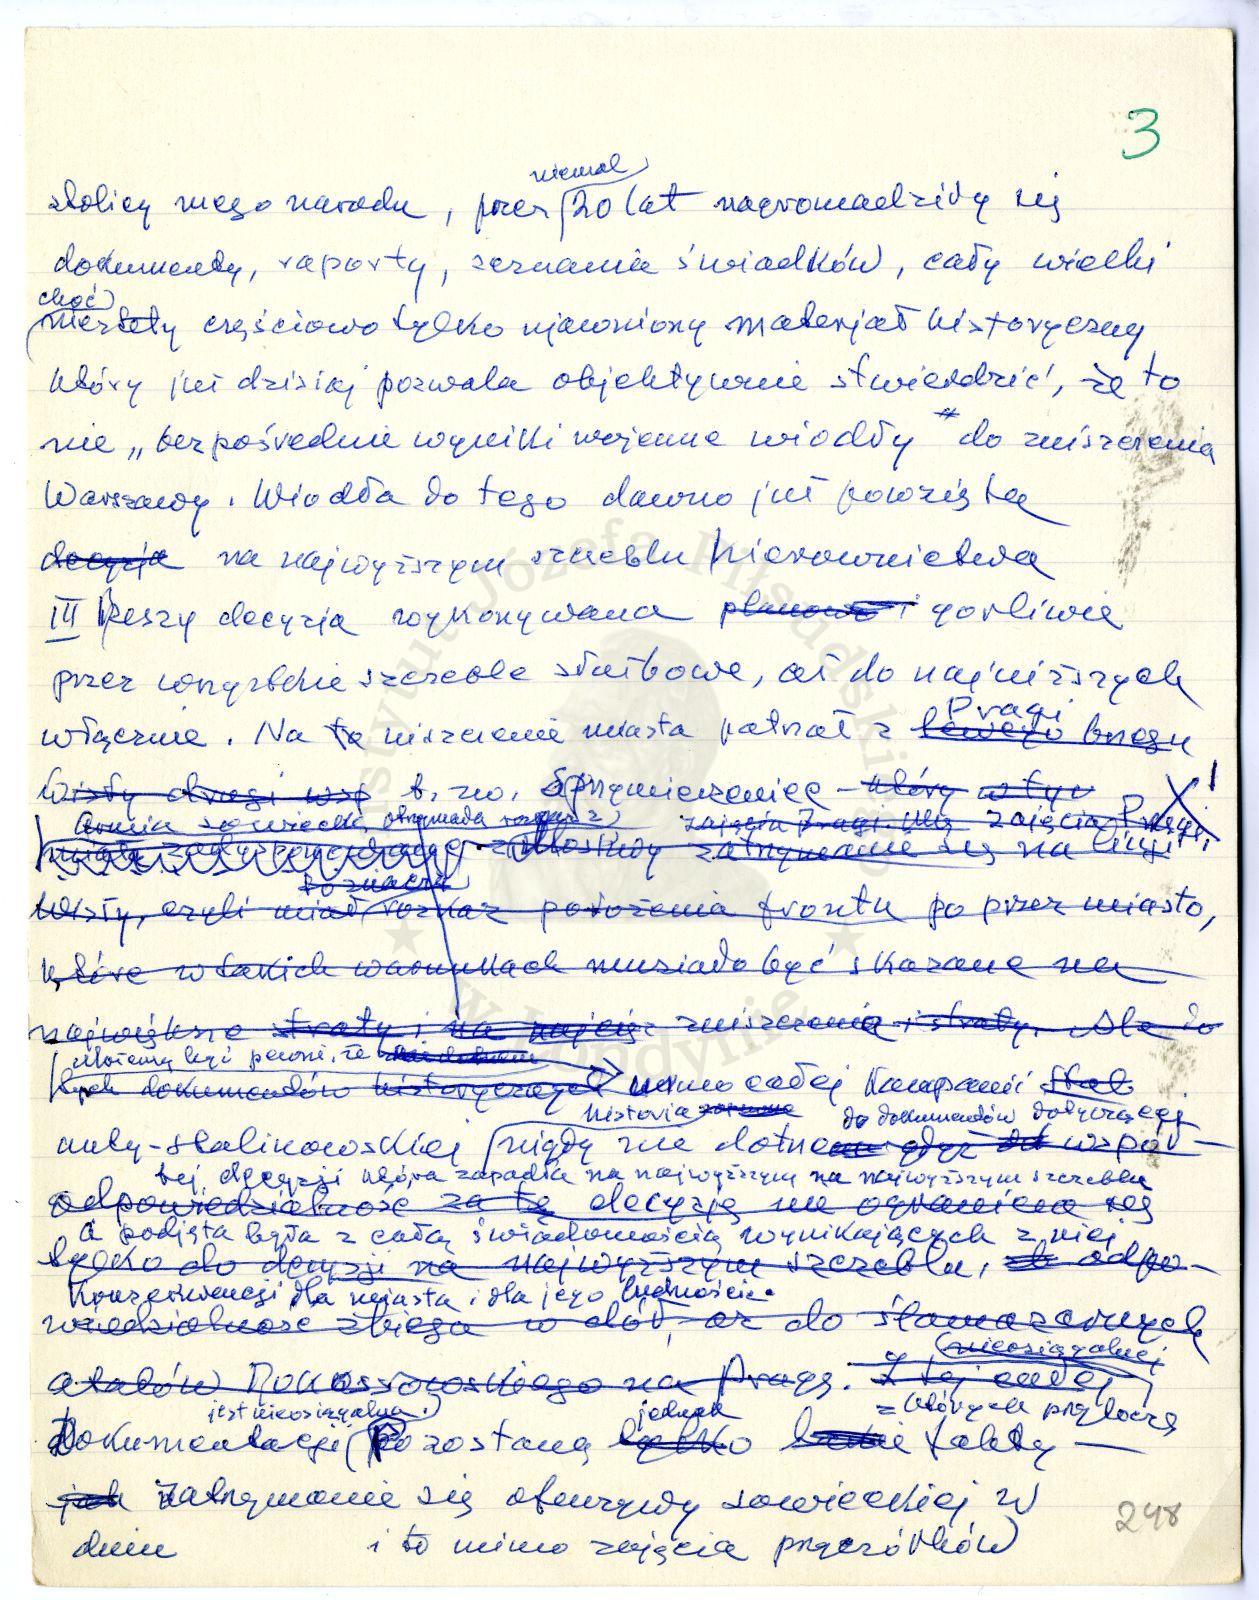 3
niemal
stolicy mego narodu, przez 20 lat nagromadziły się
dokumenty, raporty, zeznania świadków, cały wielki
choć
niestety częściowo tylko ujawniony materjał historyczny
który już dzisiaj pozwala objektywnie stwierdzić, że to
nie „bezpośrednie wyniki wojenne wiodły" do zniszczenia
Warszawy. Wiodła do tego dawno już powzięta
decyzja na najwyższym szczeblu kierownictwa
III Rzeszy decyzja wykonywana planowo i gorliwie
przez wszystkie szczeble służbowe, aż do najniższych
Pragi
włącznie. Na to niszczenie miasta patrzał z lewego brzegu
Wisły drugi t. zw. Sprzymierzeniec – który
Armia sowiecka otrzymała rozkaz z zajęcia Pragi. zajęcia Pragi,
z Moskwy zatrzymanie się na linji
Wisły, czyli miał rozkaz położenia frontu po przez miasto,
które w takich warunkach musiało być skazane na
największe straty i na zniszczenia i straty. Ale do
Możemy być pewni, że
tych dokumentów historycznych mimo całej kampanii
historia do dokumentów dotyczącej
anty-stalinowskiej nigdy nie dotrze gdyż współ–
tej decyzji która zapadła na najwyższym na najwyższym szczeblu
odpowiedzialność za tę decyzję nie ogranicza się
a podjęta była z całą świadomością wynikających z niej
tylko do decyzji na najwyższym szczeblu, odpo–
konsekwencji dla miasta i dla jego ludności.
wiedzialność zbiega w dół, aż do ślamazarnych
nieosiągalnej
ataków Rokossowskiego na Pragę. z tej całej
jest nieosiągalna. jednak z których przytoczę
Dokumentacji Pozostaną tylko fakty –
jak Zatrzymanie się ofenzywy sowieckiej w
dniu i to mimo zajęcia przyczółków
248
Instytut Józefa Piłsudskiego
w Londynie